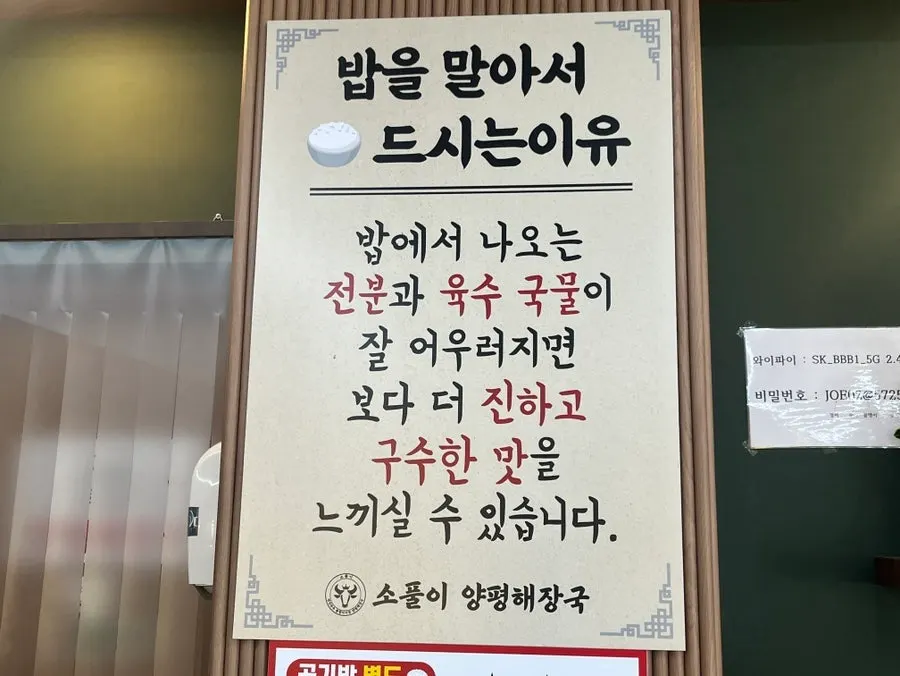 밥을 말아서
드시는이유
밥에서 나오는
전분과 육수 국물이
잘 어우러지면
보다 더 진하고
구수한 맛을
느끼실 수 있습니다.
소풀이 양평해장국
와이파이 : SK_BBB1_5G 2.4
비밀번호 :
공기밥 별도